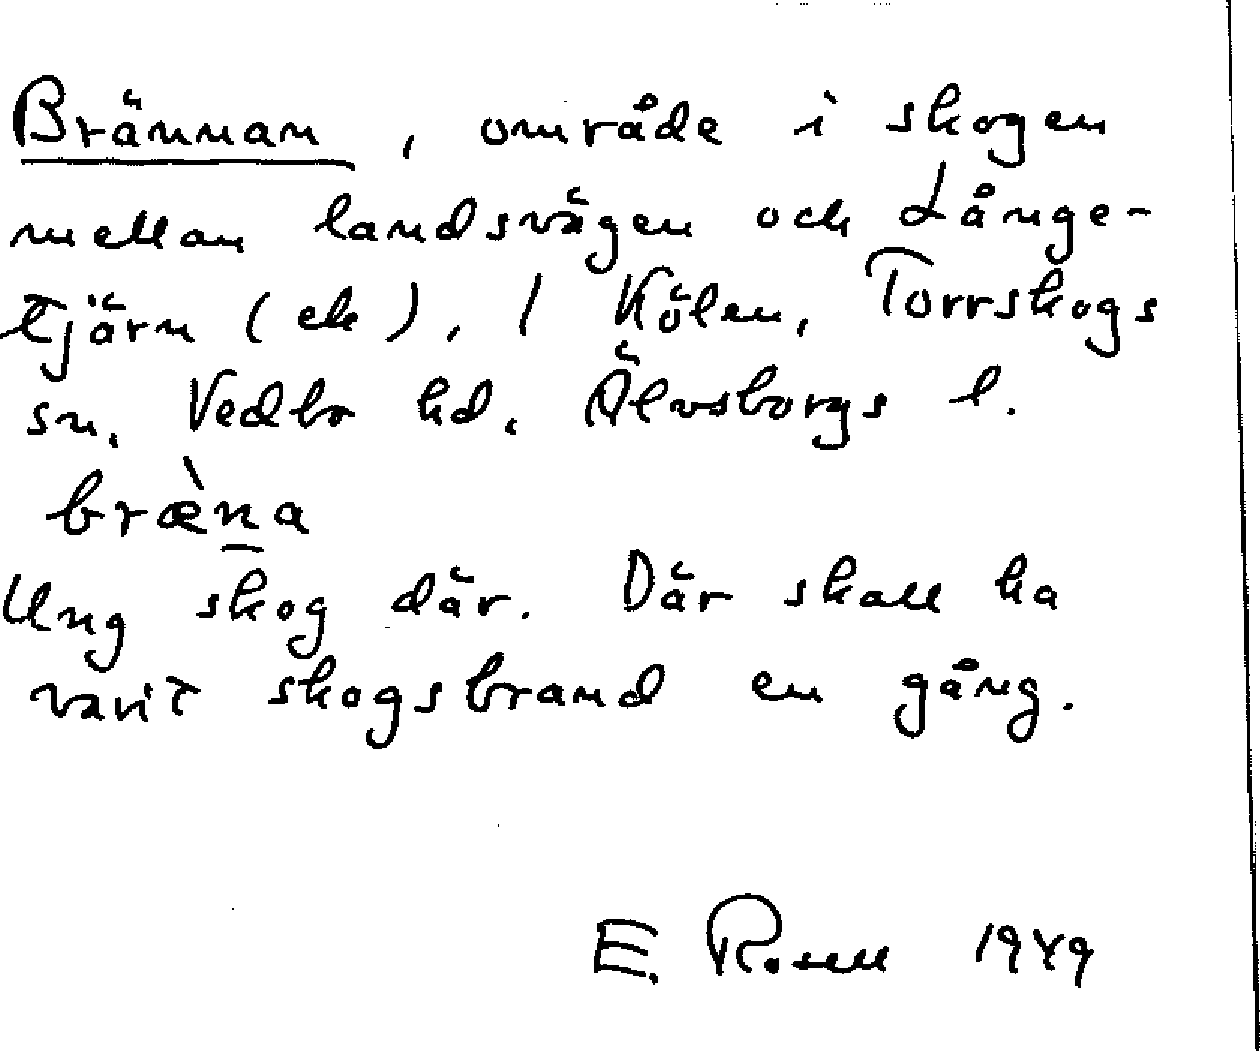 Brännan, område i skogen
mellan landsvägen och Långe-
tjärn (ek), 1 Kölen, Torrskogs
sn, Vedbo hd, Älvsborgs l.
bræ̀na
Ung skog där. Där skall ha
varit skogsbrand en gång.
E. Rosell 1949